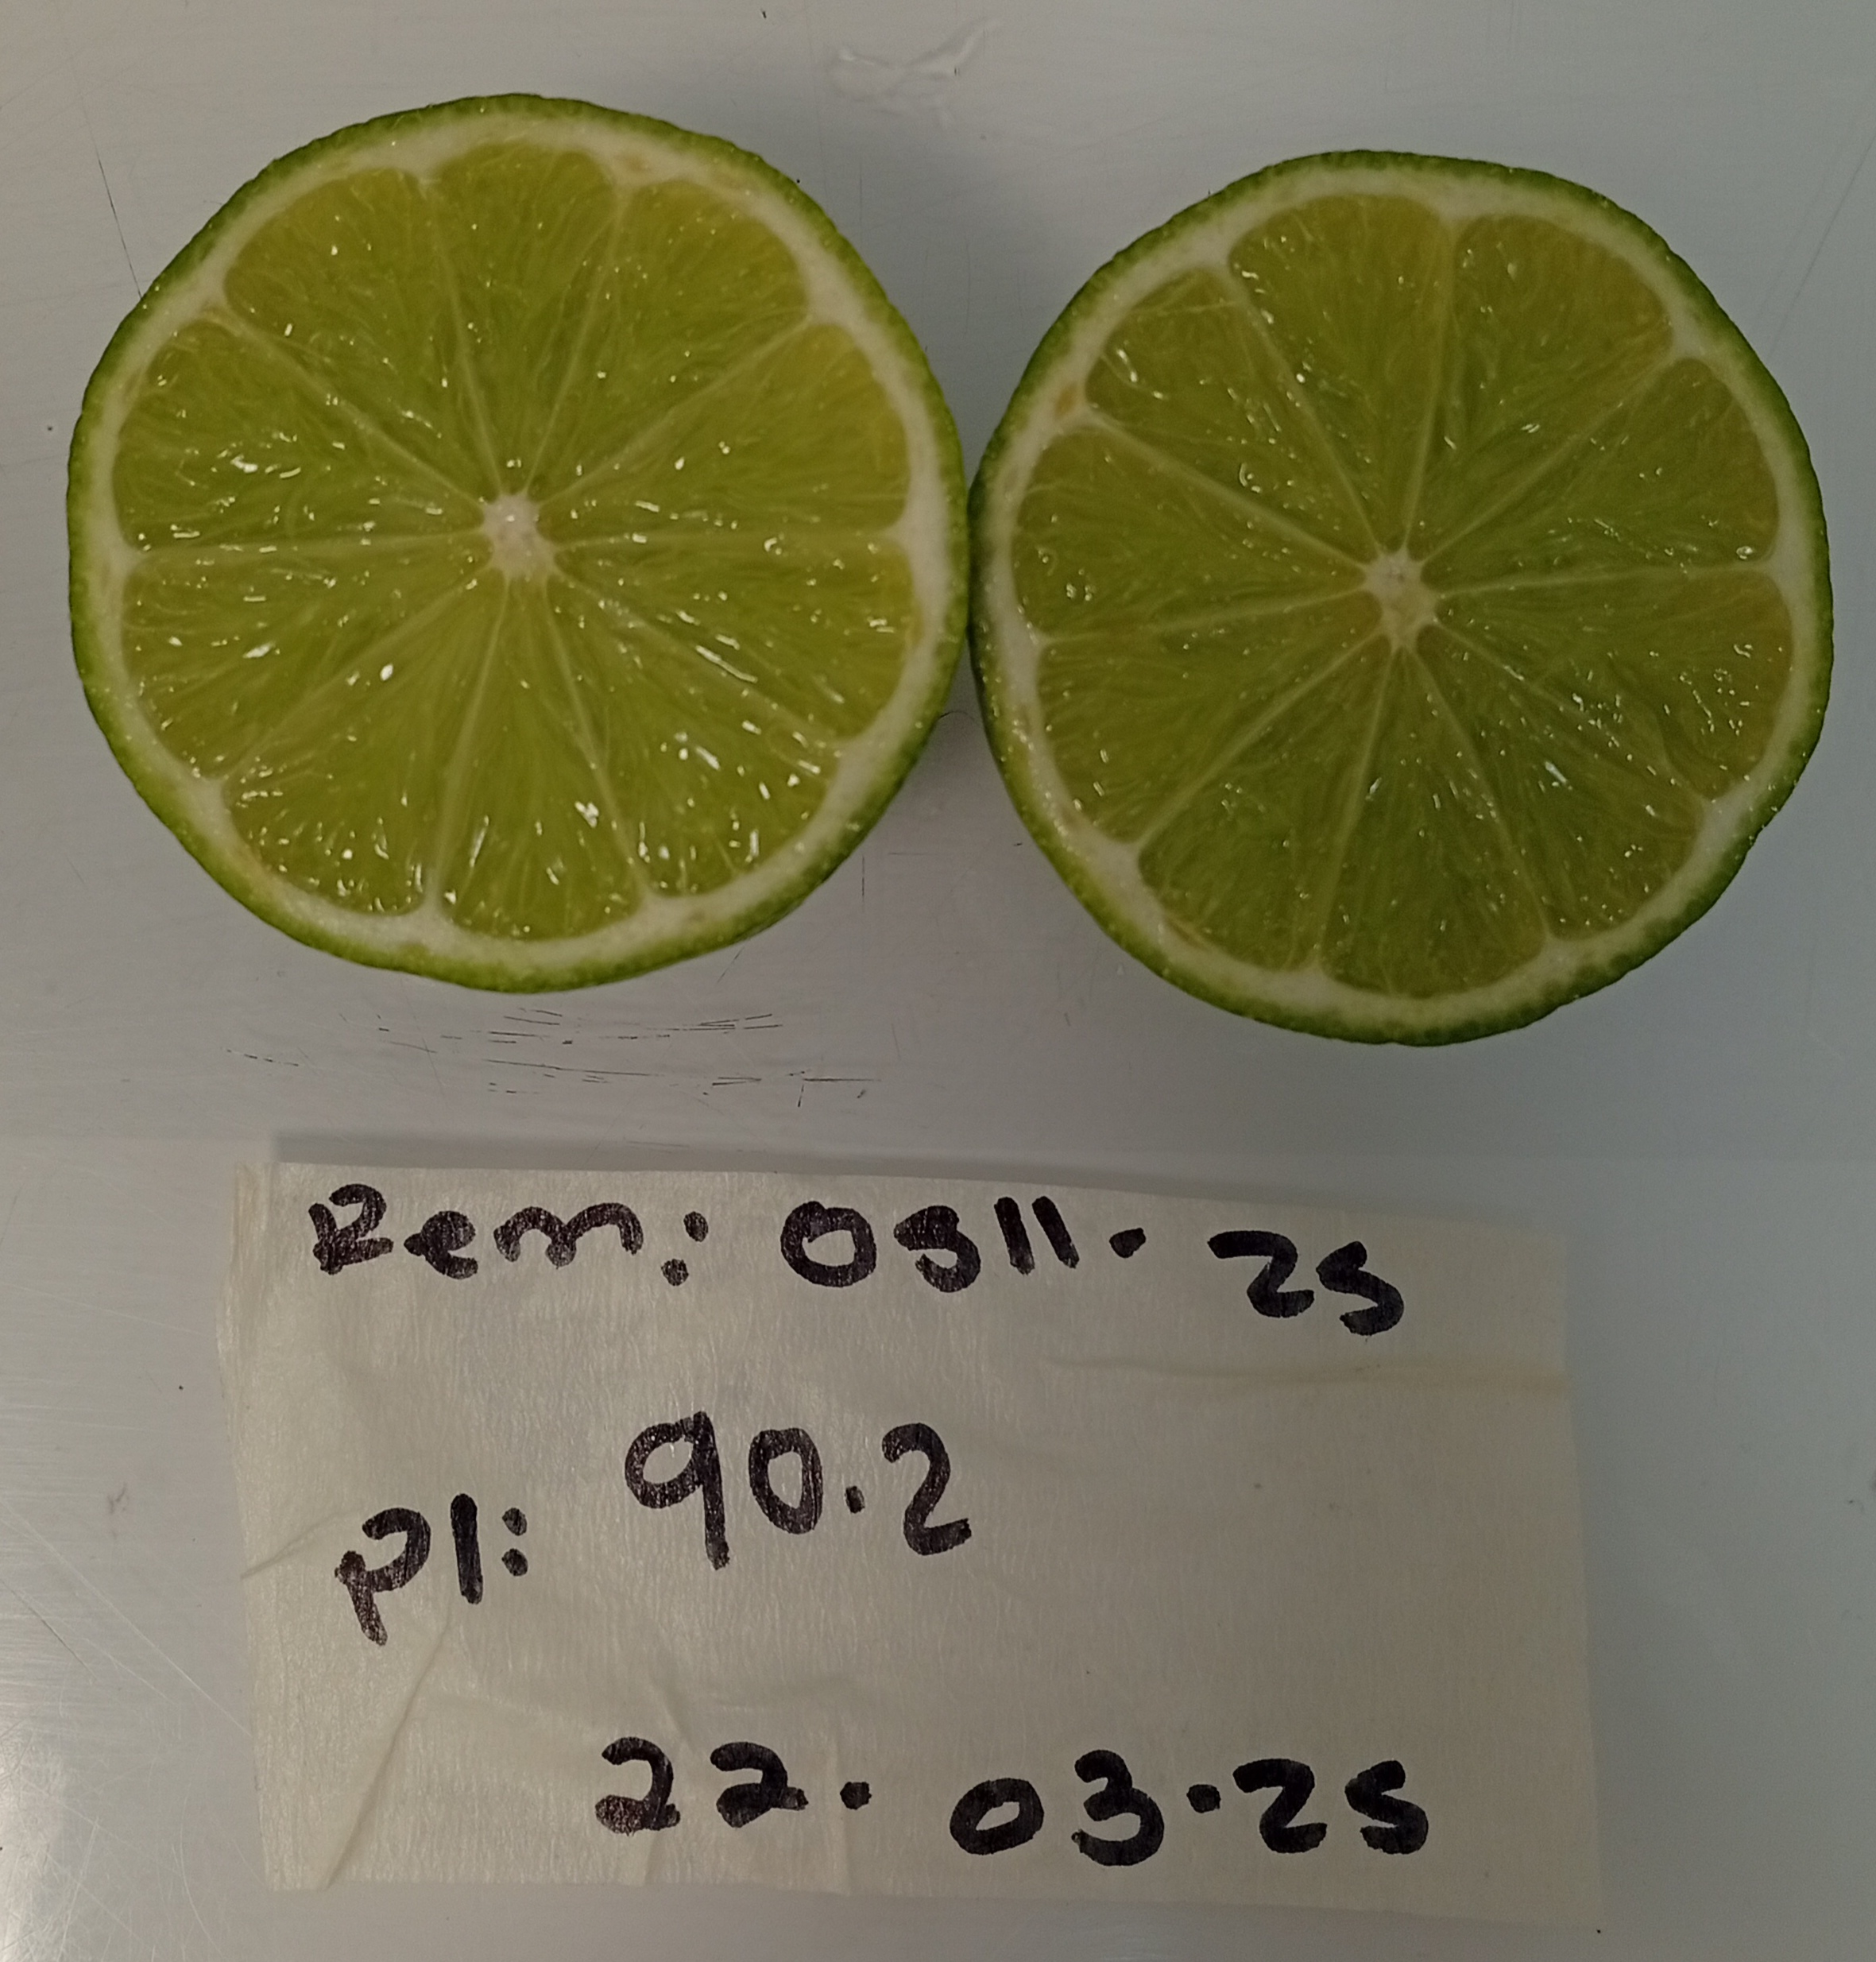 Rem: 0311. 25
Pl: 90.2
22. 03.25